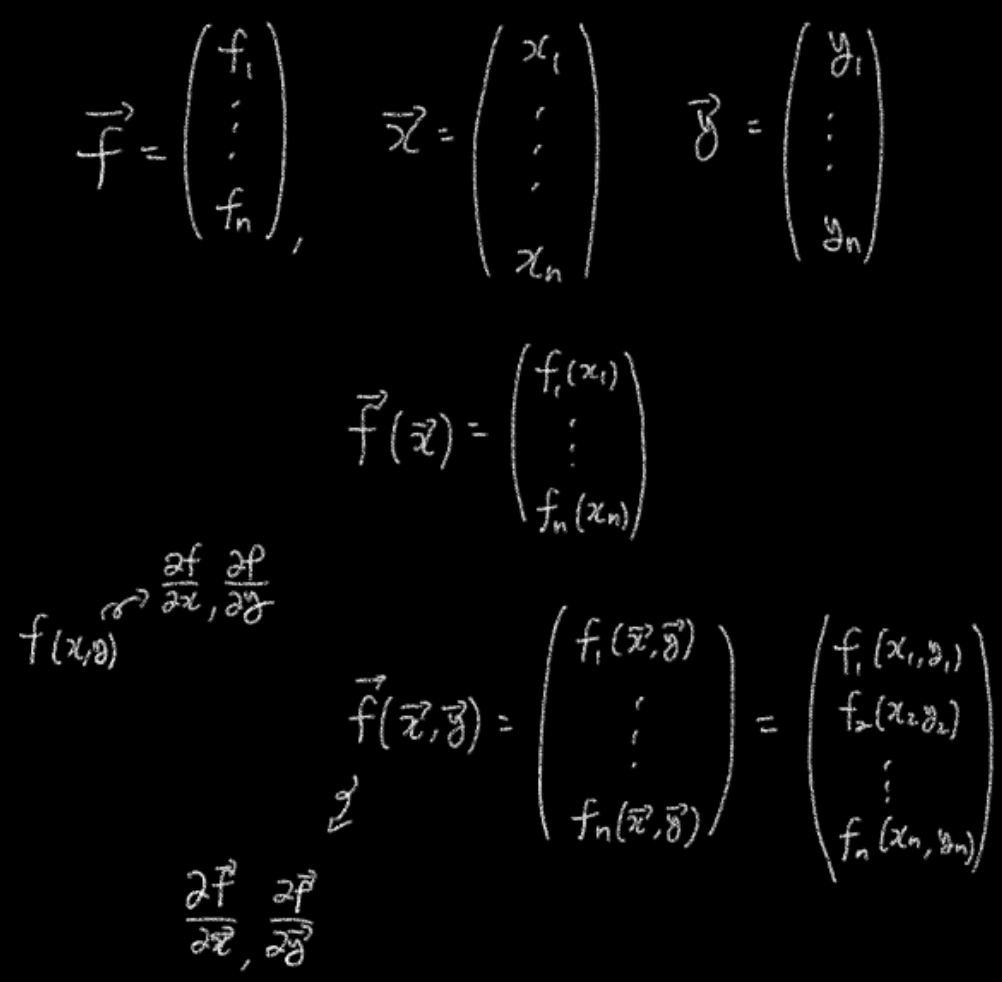 $\vec{f} = \begin{pmatrix} f_1 \\ \vdots \\ f_n \end{pmatrix}, \quad \vec{x} = \begin{pmatrix} x_1 \\ \vdots \\ x_n \end{pmatrix} \quad \vec{y} = \begin{pmatrix} y_1 \\ \vdots \\ y_n \end{pmatrix}$
$\vec{f}(\vec{x}) = \begin{pmatrix} f_1(x_1) \\ \vdots \\ f_n(x_n) \end{pmatrix}$
$f(x,y) \rightarrow \frac{\partial f}{\partial x}, \frac{\partial f}{\partial y}$
$\vec{f}(\vec{x},\vec{y}) = \begin{pmatrix} f_1(\vec{x},\vec{y}) \\ \vdots \\ f_n(\vec{x},\vec{y}) \end{pmatrix} = \begin{pmatrix} f_1(x_1,y_1) \\ f_2(x_2 y_2) \\ \vdots \\ f_n(x_n,y_n) \end{pmatrix}$
$\frac{\partial \vec{f}}{\partial \vec{x}}, \frac{\partial \vec{f}}{\partial \vec{y}}$